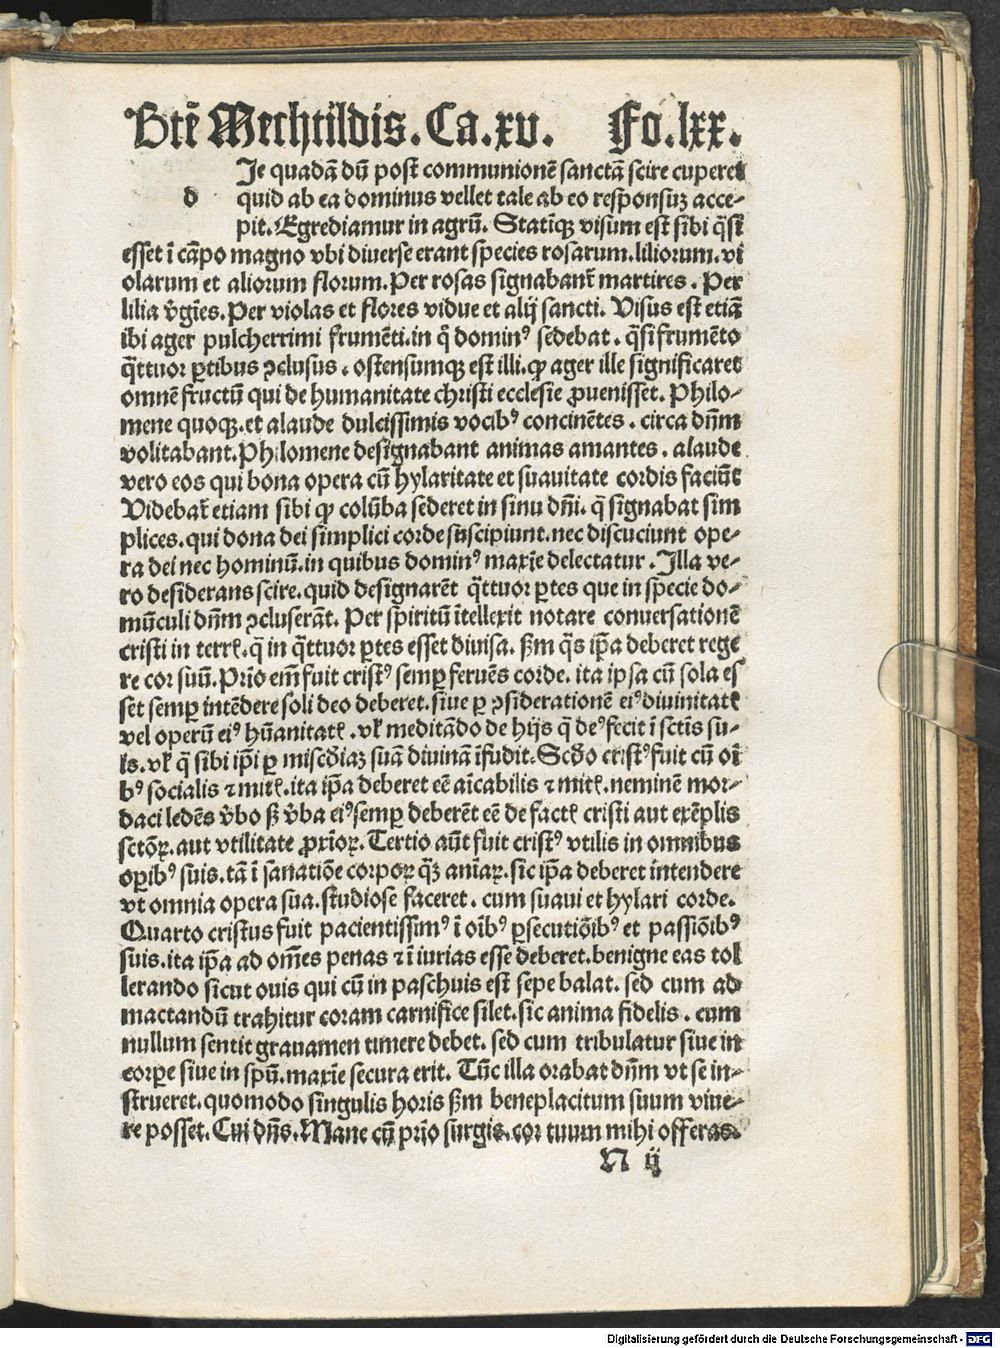 Btē Mechtildis. Ca. xv. Fo. lxx.
Je quadā dū post communionē sanctā scire cuperet
d quid ab ea dominus vellet tale ab eo responsuꝫ acce-
pit. Egrediamur in agrū. Statimqꝫ visum est sibi q̄si
esset ī cāpo magno vbi diuerse erant species rosarum. liliorum. vi
olarum et aliorum florum. Per rosas signabant᷑ martires. Per
lilia v̄gīes. Per violas et flores vidue et alij sancti. Visus est etiā
ibi ager pulcherrimi frumēti. in q̄ dominꝰ sedebat. q̄si frumēto
q̄ttuor ꝑtibus ꝯclusus. ostensumqꝫ est illi. ꝙ ager ille significaret
omnē fructū qui de humanitate christi ecclesie ꝓuenisset. Philo-
mene quoqꝫ. et alaude dulcissimis vocibꝰ concinētes. circa dn̄m
volitabant. Philomene designabant animas amantes. alaude
vero eos qui bona opera cū hylaritate et suauitate cordis faciūt
Videbat᷑ etiam sibi ꝙ colūba sederet in sinu dn̄i. q̄ signabat sim
plices. qui dona dei simplici corde suscipiunt. nec discuciunt ope-
ra dei nec hominū. in quibus dominꝰ maxīe delectatur. Illa ve-
ro desiderans scire. quid designarēt q̄ttuor ꝑtes que in specie do-
mūculi dn̄m ꝯcluserāt. Per spiritū ītellexit notare conuersationē
cristi in terrꝭ. q̄ in q̄ttuor ꝑtes esset diuisa. ẜm q̄s ip̄a deberet rege
re cor suū. Prīo em̄ fuit cristꝰ semꝑ feruēs corde. ita ipsa cū sola es
set semꝑ intēdere soli deo deberet. siue ꝑ ꝯsiderationē eiꝰ diuinitatꝭ
vel operū eiꝰ hūanitatꝭ. vꝉ meditādo de hijs q̄ deꝰ fecit ī sctīs su-
is. vꝉ q̄ sibi ip̄i ꝑ miscd̄iaꝫ suā diuinā īfudit. Scd̄o cristꝰ fuit cū oī
bꝰ socialis ⁊ mitꝭ. ita ip̄a deberet eē aīcabilis ⁊ mitꝭ. neminē mor-
daci ledēs v̄bo sꝫ v̄ba eiꝰ semꝑ deberēt eē de factꝭ cristi aut exēplis
sctōꝝ. aut vtilitate ꝓxīoꝝ. Tertio aūt fuit cristꝰ vtilis in omnibus
oꝑibꝰ suis. tā ī sanatiōe corpoꝝ q̄ꝫ anīaꝝ. sic ip̄a deberet intendere
vt omnia opera sua. studiose faceret. cum suaui et hylari corde.
Quarto cristus fuit pacientissimꝰ ī oībꝰ ꝑsecutiōibꝰ et passiōibꝰ
suis. ita ip̄a ad om̄es penas ⁊ ī iurias esse deberet. benigne eas tol
lerando sicut ouis qui cū in paschuis est sepe balat. sed cum ad
mactandū trahitur coram carnifice silet. sic anima fidelis. cum
nullum sentit grauamen timere debet. sed cum tribulatur siue in
corꝑe siue in spū. maxīe secura erit. Tūc illa orabat dn̄m vt se in-
strueret. quomodo singulis horis ẜm beneplacitum suum viue-
re posset. Cui dn̄s. Mane cū prīo surgis. cor tuum mihi offeras.
N ij
Digitalisierung gefördert durch die Deutsche Forschungsgemeinschaft - DFG